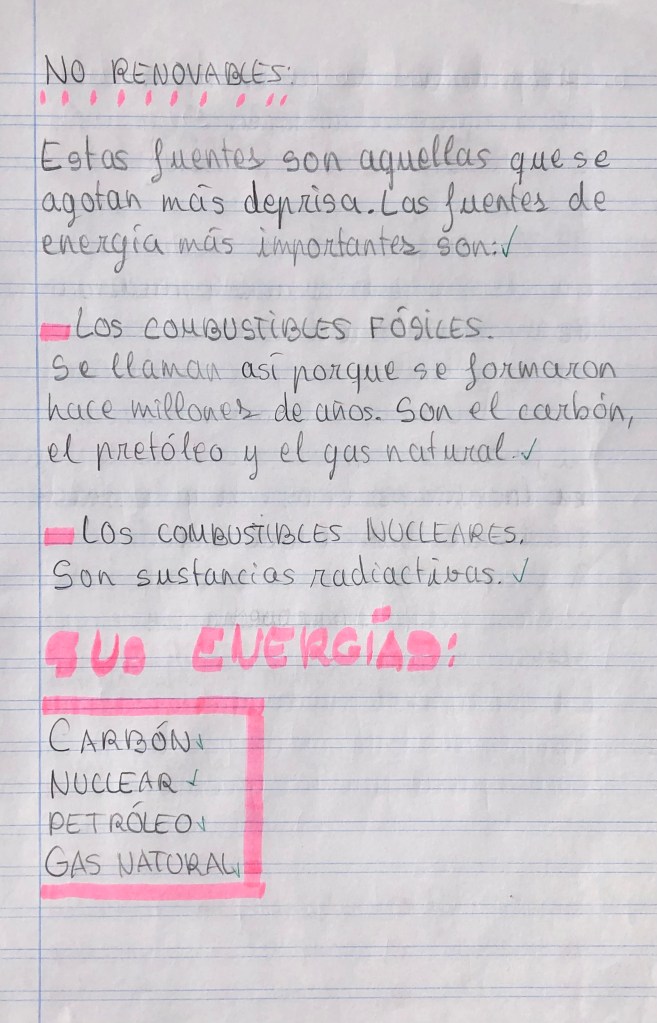 NO RENOVABLES:
Estas fuentes son aquellas que se
agotan más deprisa. Las fuentes de
energía más importantes son:
LOS COMBUSTIBLES FÓSILES.
Se llaman así porque se formaron
hace millones de años. Son el carbón,
el pretóleo y el gas natural.
LOS COMBUSTIBLES NUCLEARES.
Son sustancias radiactivas.
SUB ENERGÍAS:
CARBÓN
NUCLEAR
PETRÓLEO
GAS NATURAL